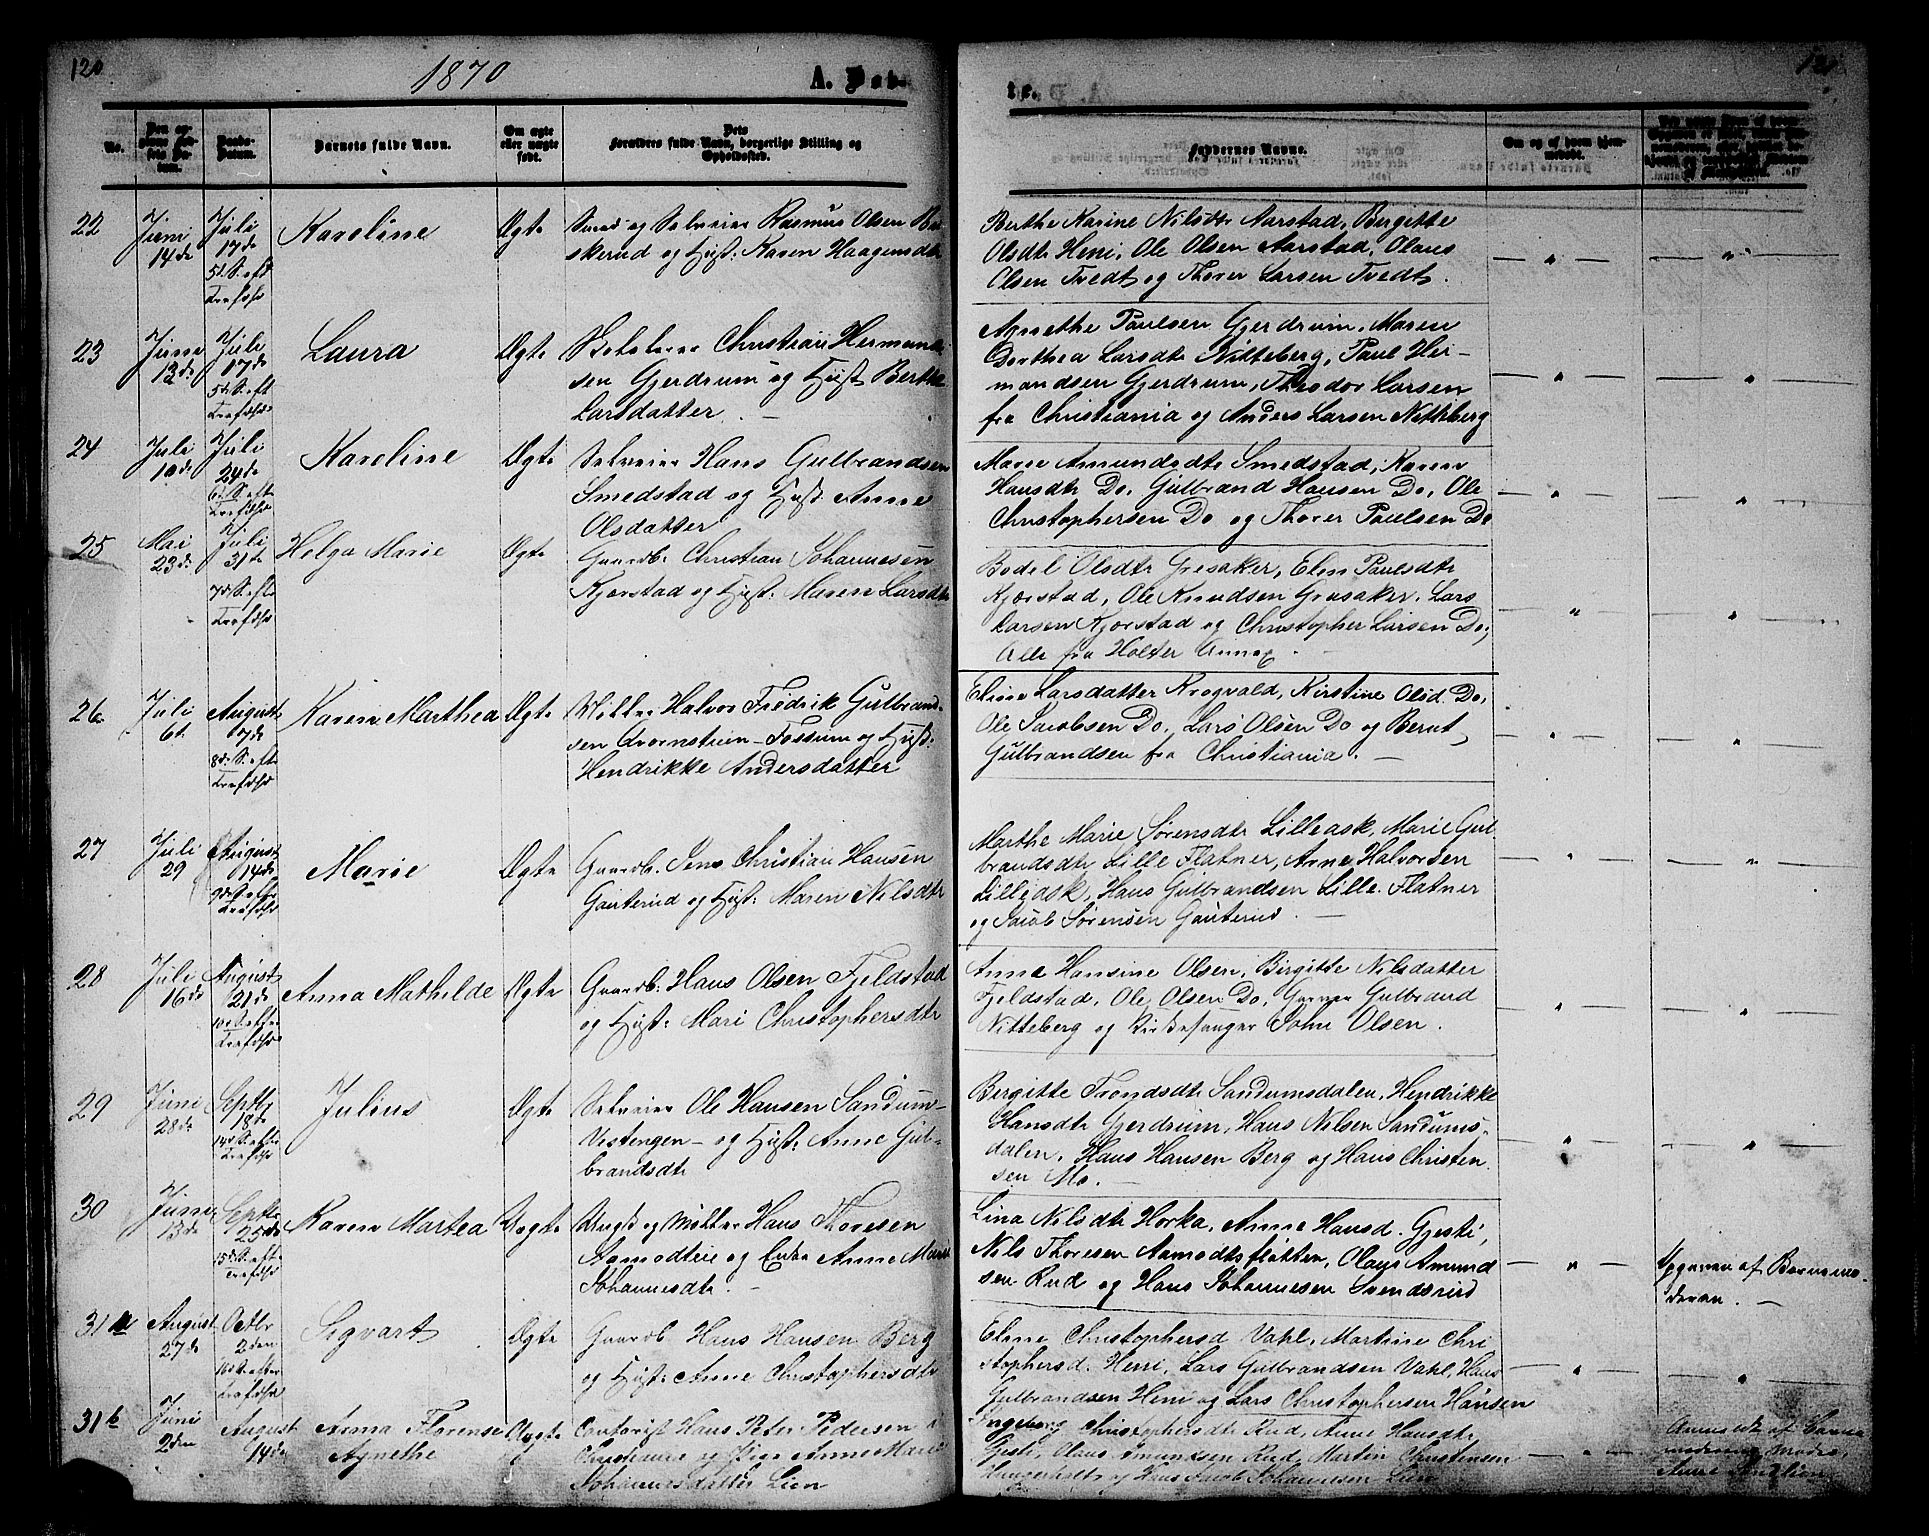 120
1870
A. Døb-
te.
121
No.
Barnets fulde Navn.
Om ægte eller uægte født.
Dets Forældres fulde Navn, borgerlige Stilling og Opholdssted.
Faddernes Navne.
Om og af hvem hjemmedøbt.
22
Juni 14de
Juli 17de
5t. S. eft Trefdhd
Karoline
Ægte
Smed og Selveier Rasmus Olsen
skerud og Hust: Karen Haagensdtr
Berthe Karine Nilsdtr Aarstad, Birgitte
Olsdtr Heni, Ole Olsen Aarstad, Olaus
Olsen Tvedt og Thorer Larsen Tvedt.
23
Juni 13de
Juli 17de
5t. S. eft Trefdhd
Laura
Ægte
Christian Herman-
sen Gjerdrum og Hust Berthe
Larsdatter. —
Agnethe Paulsen Gjerdrum, Maren
Dorthea Larsdtr Nitteberg, Paul Her-
mandsen Gjerdrum, Theodor Larsen
fra Christiania og Anders Larsen Nitteberg
24
Juli 10de
Juli 24de
6t. S. eft Trefdhd
Karoline
Ægte
Selveier Hans Gulbrandsen
Smedstad og Hust. Anne
Olsdatter
Maree Amundsdtr Smedstad, Karen
Hansdtr Do, Gulbrand Hansen Do, Ole
Christophersen Do og Thorer Paulsen Do
25
Mai 23de
Juli 31te
7de S. eft Trefdhd
Helga Marie
Ægte
Gaardb. Christian Johannesen
Kjørstad og Hust: Maren Larsdtr
Bodel Olsdtr Gresaker, Elen Paulsdtr
Kjørstad, Ole Knudsen Gresaker, Lars
Larsen Kjørstad og Christopher Larsen Do,
Alle fra Holter Annex. -
26
Juli 6t.
August 7de
8de S. eft Trefdhd
Karen Marthea
Ægte
Møller Halvor Fredrik Gulbrand-
sen Qvernstuen-Fossum og Hust:
Hendrikke Andersdatter
Eline Larsdatter Krogvald, Kirstine Olsd. Do,
Ole Jacobsen Do, Lars Olsen Do og Bernt
Gulbrandsen fra Christiania. —
27
Juli 29
August 14de
9de S. efter Trefdhd
Marie
Ægte
Gaardb. Jens Christian Hansen
Gauterud og Hust: Maren Nilsdtr
Marthe Marie Sørensdtr Lilleask, Marie Gul
brandsdtr Lille Flatner, Arne Halvorsen
Lilleask, Hans Gulbrandsen Lille-Flatner
og Jacob Sørensen Gauterud. —
28
Juli 16de
August 21de
10de S. efter Trefdhd
Anna Mathilde
Ægte
Gaardb: Hans Olsen Fjeldstad
og Hust: Mari Christophersdtr
Anne Hansine Olsen, Birgitte Nilsdatter
Fjeldstad, Ole Olsen Do, Garver Gulbrand
Nitteberg og Kirkesanger John Olsen.
29
Juni 28de
Septbr 18de
14de S. efter Trefdhd
Julius
Ægte
Selveier Ole Hansen Sandum-
Vestengen- og Hust: Anne Gul-
brandsdtr
Birgitte Trondsdtr Sandumsdalen, Hendrikke
Hansdtr Gjerdrum, Hans Nilsen Sandums-
dalen, Hans Hansen Berg og Hans Christen
sen Mo. —
30
Juni 13de
Septbr 25de
15de S. eft Trefdhd
Karen Martea
Uægte
Ungk og Møller Hans Thoresen
Aamodteie og Enke Anne Marie
Johannesdtr. —
Lina Nilsdtr Horka, Anne Hansd. Gjesti,
Nils Thoresen Aamodtsfløtten, Olaus Amund
sen Rud og Hans Johannesen Svendsrud
Opgiven af Barnemo-
deren. —
31a
August 27de
Octbr 2den
16de S. efter Trefdhd
Sigvart
Ægte
Gaardb Hans Hansen Berg
og Hust: Anne Christophersdtr
Eline Christophersd Vahl, Martine Chri
stophersd. Heni, Lars Gulbrandsen Vahl, Hans
Gulbrandsen Heni og Lars Christophersen Hansen
31b
Juni 2den
August 14de
Anna Florense
Agnethe
Uægte
Contorist Hans Peter Pedersen i
Christiania og Pige Anne Marie
Johannesdatter Lien
Ingeborg Christophersdtr Rud, Anne Hansdtr
Gjesti, Olaus Amundsen Rud, Martin Christensen
Hungerholt og Hans Jacob Johannesen Lien
Anmeldt af Barne
moderens Moder,
Anne